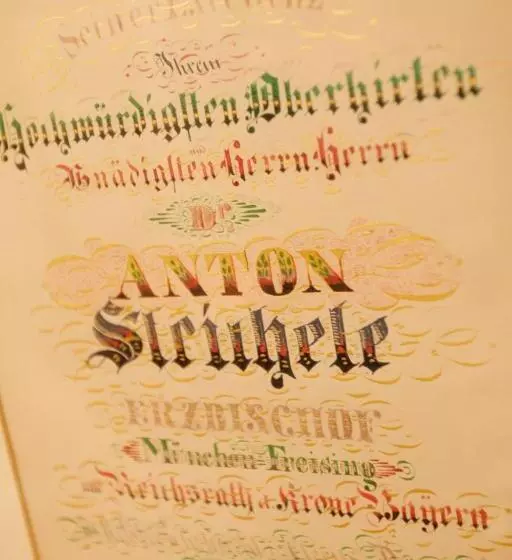 Seiner Excellenz
Ihrem
Hochwürdigsten Oberhirten
und
Gnädigsten Herrn Herrn
Dr
ANTON
Steichele
ERZBISCHOF
München-Freising
Reichsrath d. Krone Bayern